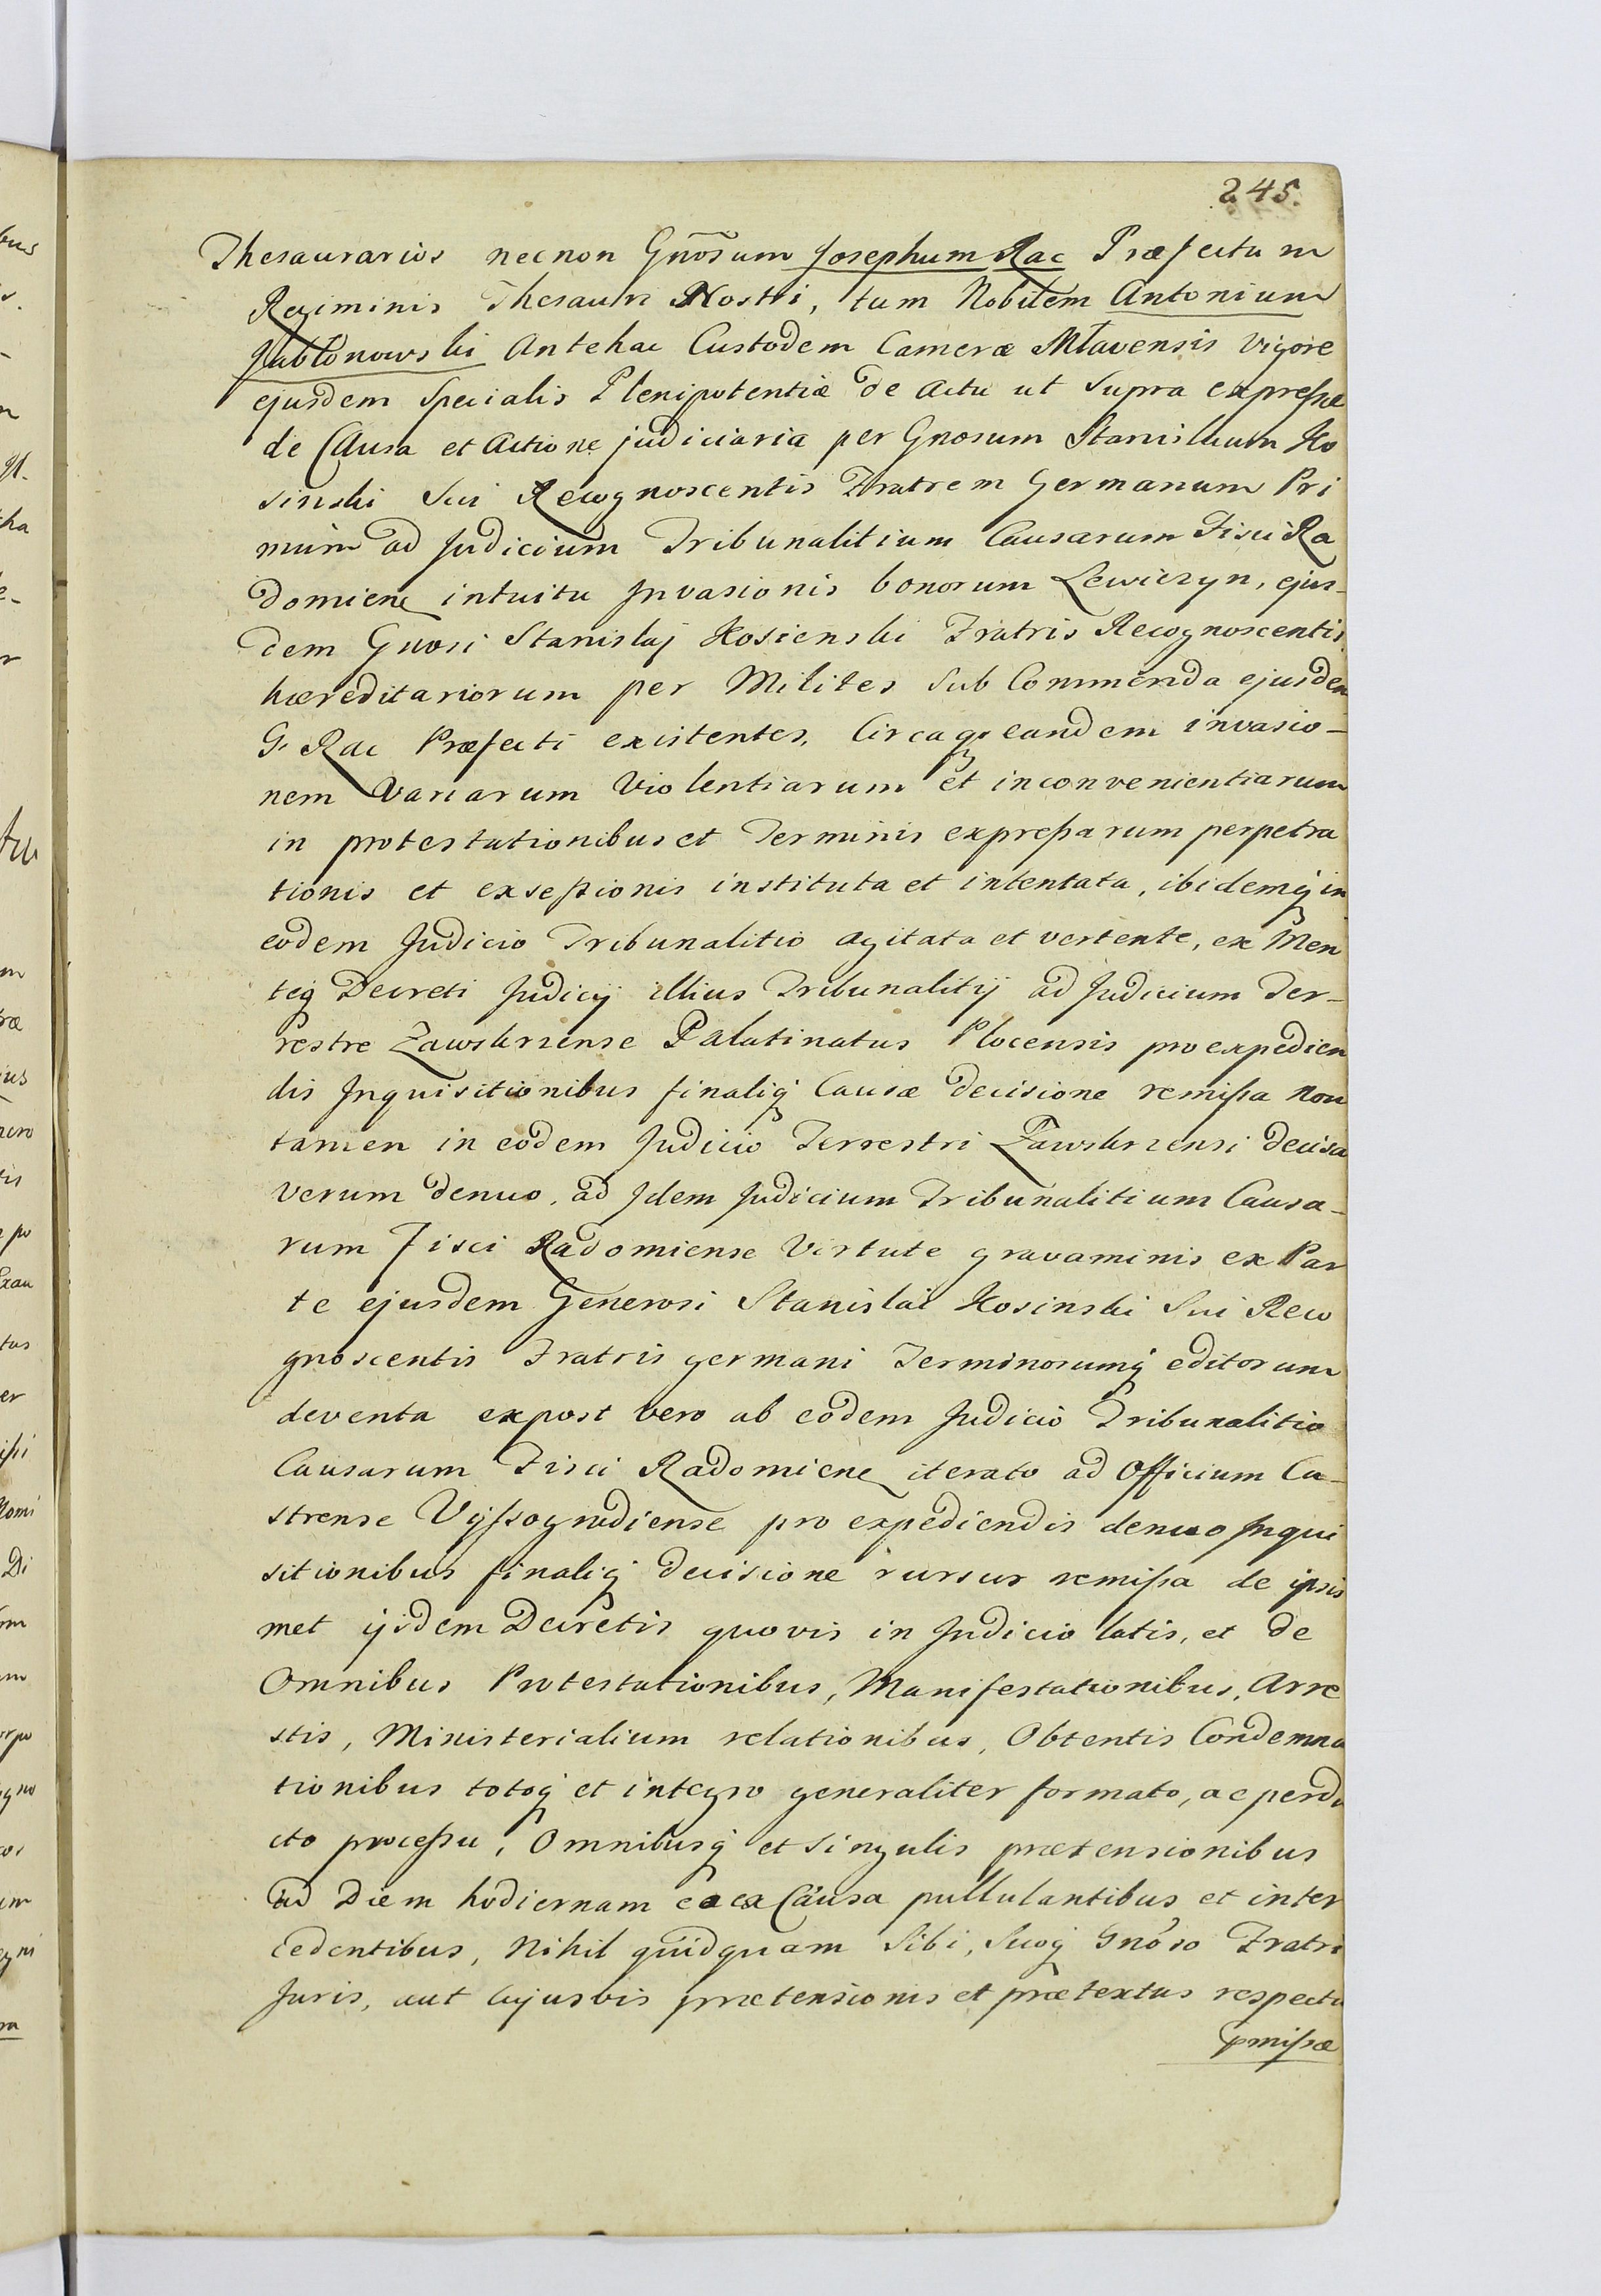 245.
Thesaurarios necnon Gnõsum Josephum Rac Præfectum
Regiminis Thesauri Nostri, tum Nobilem Antonium
Jabłonowski Antehac Custodem Cameræ Mławensis vigore
ejusdem Specialis Plenipotentiæ de Actu ut Supra expressæ
de Causa et Actione judiciaria per Gnosum Stanislaum Ko
sinski Sui Recognoscentis Fratrem Germanum Pri
mum ad Judicium Tribunalitium Causarum Fisci Ra
domiene intuitu Invasionis bonorum Lewiczyn, ejus-
dem Gnosi Stanislaj Kosienski Fratris Recognoscentis
hæreditariorum per Milites Sub Commenda ejusdem
G. Rac Præfecti existentes, Circaq; eandem invasio-
nem Variarum Violentiarum et inconvenientiarum
in protestationibus et Terminis expressarum perpetra
tionis et exsessionis instituta et intentata, ibidemq; in
eodem Judicio Tribunalitio agitata et vertente, ex Men
teq Decreti Judicij illius Tribunalitij ad Judicium Ter-
restre Zawskrzense Palatinatus Plocensis pro expedien
dis Inquisitionibus finaliq; Causæ decisione remissa non
tamen in eodem Judicio Terrestri Zawskrzensi decisa
verum denuo, ad Idem Judicium Tribunalitium Causa-
rum Fisci Radomiense Virtute gravaminis ex Par
te ejusdem Generosi Stanislai Kosinski Sui Reco
gnoscentis Fratris germani Terminorumq; editorum
deventa expost vero ab eodem Judicio Tribunalitio
Causarum Fisci Radomiene iterato ad Officium Ca-
strense Vyssogrodiense pro expediendis denuo Inqui
sitionibus finaliq; decisione rursus remissa de ipsis
met ijsdem Decretis quovis in Judicio latis, et de
Omnibus Protestationibus, Manifestationibus, Arre
stis, Ministerialium relationibus, Obtentis Condemna
tionibus totoq; et integro generaliter formato, ac perdu
cto processu, Omnibusq; et singulis prætensionibus
ad Diem hodiernam ea ex Causa pullulantibus et inter
cedentibus, Nihil quidquam Sibi, Suoq; Gnoso Fratri
Juris, aut cujusvis prætensionis et prætextus respectu
pmissæ